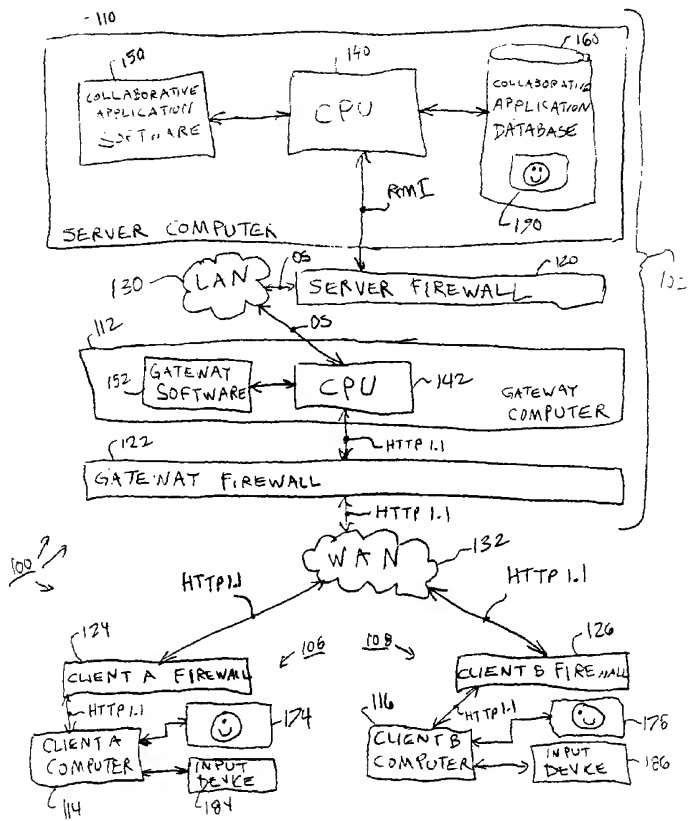 110
150
COLLABORATIVE
APPLICATION
SOFTWARE
140
CPU
160
COLLABORATIVE
APPLICATION
DATABASE
190
RMI
SERVER COMPUTER
130
LAN
OS
120
SERVER FIREWALL
OS
112
152
GATEWAY
SOFTWARE
CPU
142
GATEWAY
COMPUTER
HTTP 1.1
122
GATEWAY FIREWALL
HTTP 1.1
100
WAN
132
HTTP 1.1
HTTP 1.1
124
106
108
126
CLIENT A FIREWALL
CLIENT B FIREWALL
HTTP 1.1
174
116
HTTP 1.1
CLIENT A
COMPUTER
CLIENT B
COMPUTER
INPUT
DEVICE
184
INPUT
DEVICE
186
114